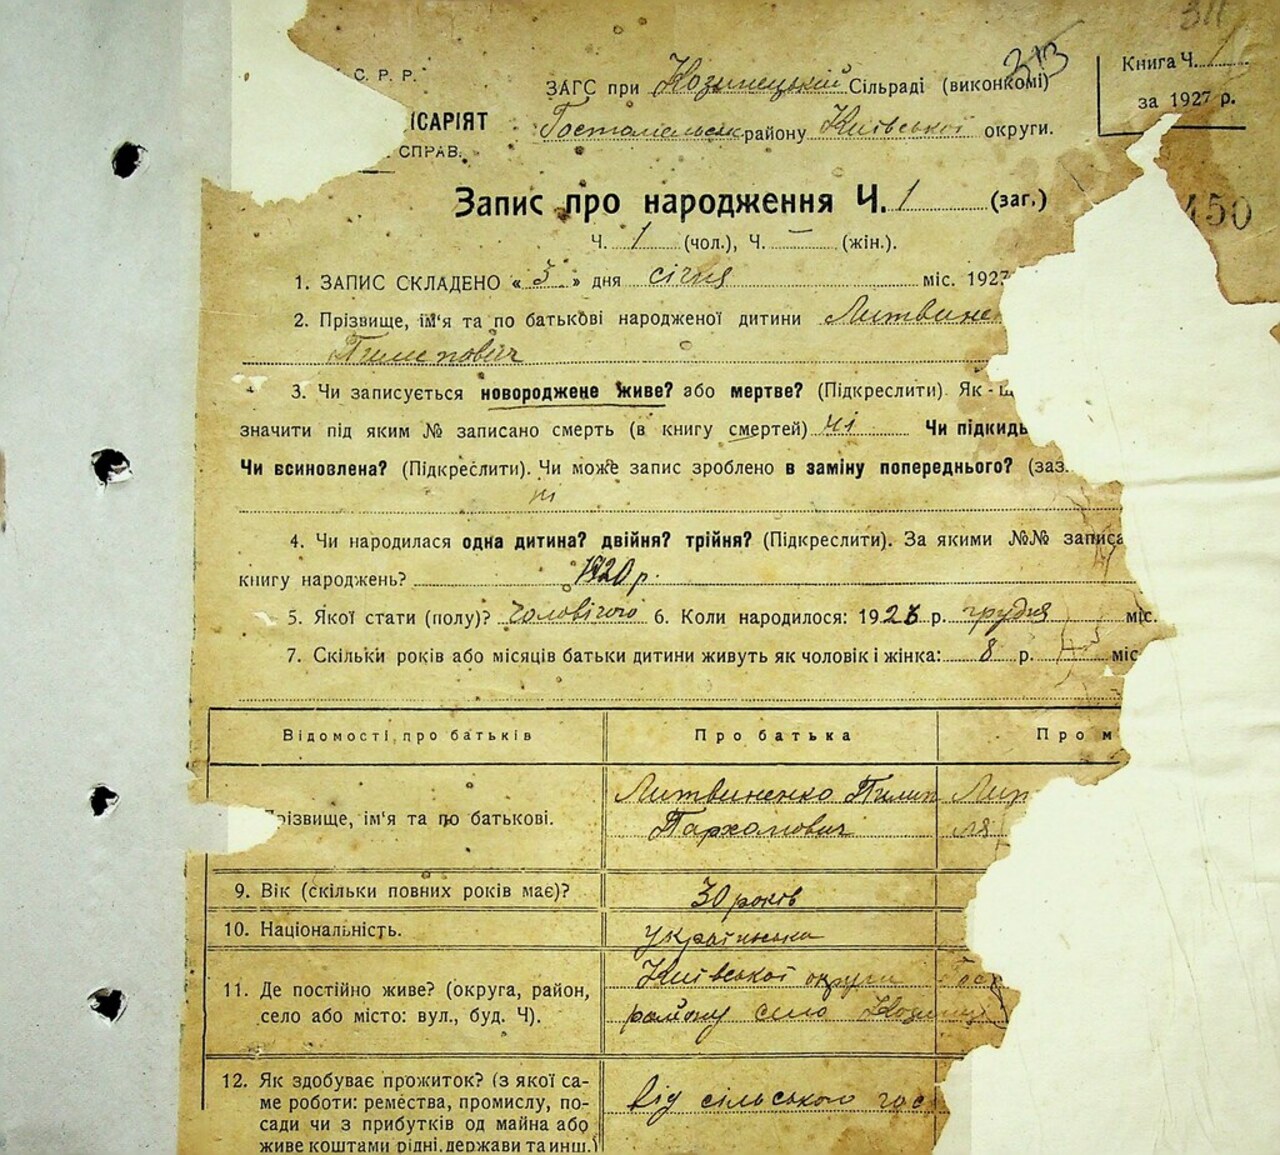 311
313
С. Р. Р.
ЗАГС при Козинецькій Сільраді (виконкомі)
Книга Ч. 1
ІСАРІЯТ
Гостомельськ району Київської округи.
за 1927 р.
СПРАВ.
Запис про народження Ч. 1 (заг.)
450
Ч. 1 (чол.), Ч. — (жін.).
1. ЗАПИС СКЛАДЕНО « 3 » дня січня міс. 1927
2. Прізвище, ім'я та по батькові народженої дитини Литвине
Пилипович
3. Чи записується новороджене живе? або мертве? (Підкреслити). Як-щ
значити під яким № записано смерть (в книгу смертей) ні Чи підкидь
Чи всиновлена? (Підкреслити). Чи може запис зроблено в заміну попереднього? (заз.
ні
4. Чи народилася одна дитина? двійня? трійня? (Підкреслити). За якими №№ записа
книгу народжень? 1920 р.
5. Якої стати (полу)? чоловічого 6. Коли народилося: 1926 р. грудня міс.
7. Скільки років або місяців батьки дитини живуть як чоловік і жінка: 8 р. міс
Відомості про батьків Про батька Про м
Прізвище, ім'я та по батькові. Литвиненко Пилип Лит
Пархомович ля
9. Вік (скільки повних років має)? 30 років
10. Національність. українська
11. Де постійно живе? (округа, район, Київської округи Гос
село або місто: вул., буд. Ч). району село Козинці
12. Як здобуває прожиток? (з якої са-
ме роботи: ремества, промислу, по- від сільського гос
сади чи з прибутків од майна або
живе коштами рідні, держави та инш.)